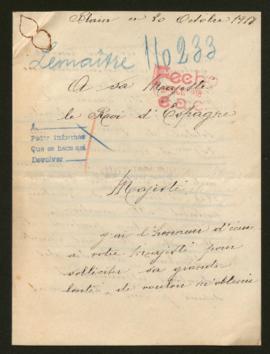 20 Octobre 1917
Lemaître
110233
Fecho
e.a.c.
A sa Majesté
le Roi d'Espagne
A
Pedir informes
Que se hace aquí
Devolver
Majesté
j'ai l'honneur d'écrire
à votre Majesté pour
solliciter sa grande
bonté, de vouloir m'obtenir